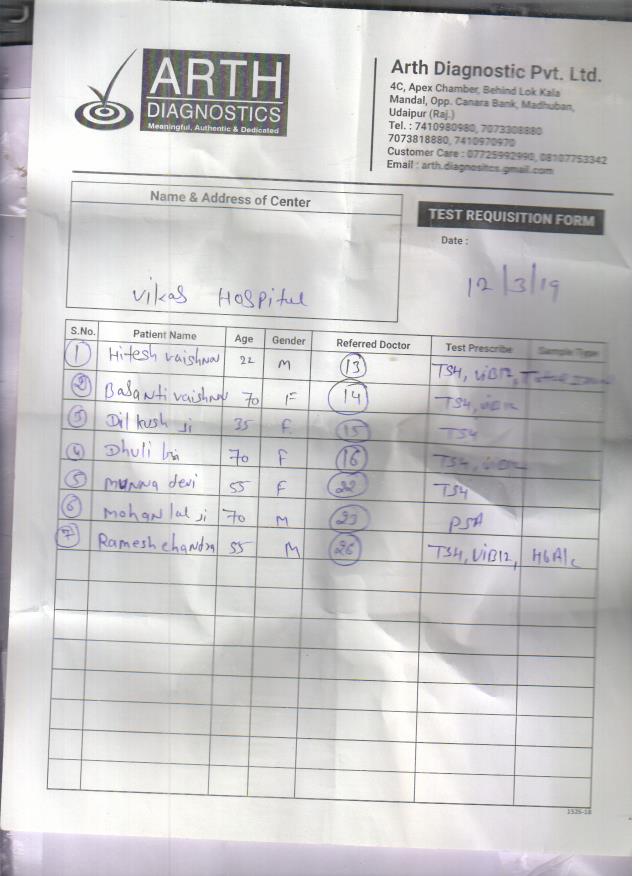 ARTH
DIAGNOSTICS
Meaningful, Authentic & Dedicated
Arth Diagnostic Pvt. Ltd.
4C, Apex Chamber, Behind Lok Kala
Mandal, Opp. Canara Bank, Madhuban,
Udaipur (Raj.)
Tel. : 7410980980, 7073308880
7073818880, 7410970970
Customer Care : 07725992990, 08107753342
Email : arth.diagnositcs.gmail.com
Name & Address of Center
Vikas Hospital
TEST REQUISITION FORM
Date :
12/3/19
S.No. Patient Name Age Gender Referred Doctor Test Prescribe Sample Type
1 Hitesh vaishnav 22 M 13 TS4, ViB12, Total
2 Basanti vaishnav 70 F 14 TS4, ViB12
3 Dil kush ji 35 F 15 TS4
4 Dhuli bai 70 F 16 TS4, ViB12
5 munna devi 55 F 22 TS4
6 Mohan lal ji 70 M 23 PSA
7 Ramesh chandra 55 M 26 TS4, ViB12, HbA1c
1526-18